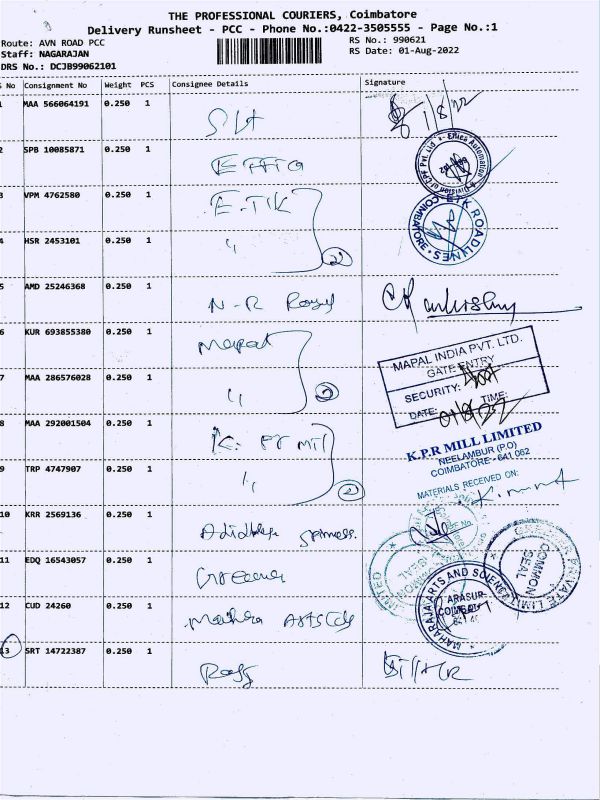 THE PROFESSIONAL COURIERS, Coimbatore
Delivery Runsheet - PCC - Phone No.:0422-3505555 - Page No.:1
Route: AVN ROAD PCC
Staff: NAGARAJAN
DRS No.: DCJB99062101
RS No.: 990621
RS Date: 01-Aug-2022
S No Consignment No Weight PCS Consignee Details Signature
1 MAA 566064191 0.250 1 1/8/22
2 SPB 10085871 0.250 1
Ethics Automation
A Division of EPF Pvt. Ltd
3 VPM 4762580 0.250 1 E.TIK
E T K ROADLINES
COIMBATORE
4 HSR 2453101 0.250 1 " 2
5 AMD 25246368 0.250 1 N-R
6 KUR 693855380 0.250 1 Mapal
MAPAL INDIA PVT. LTD.
GATE ENTRY
SECURITY:
DATE: 01/8/22 TIME:
7 MAA 286576028 0.250 1 " 2
8 MAA 292001504 0.250 1 K. PR mill
K.P.R MILL LIMITED
NEELAMBUR (P.O)
COIMBATORE - 641 062
MATERIALS RECEIVED ON:
9 TRP 4747907 0.250 1 " 2
10 KRR 2569136 0.250 1
11 EDQ 16543057 0.250 1
COMMON SEAL
PRIVATE LIMITED
12 CUD 24260 0.250 1
MAHARAJA ARTS AND SCIENCE
ARASUR
13 SRT 14722387 0.250 1